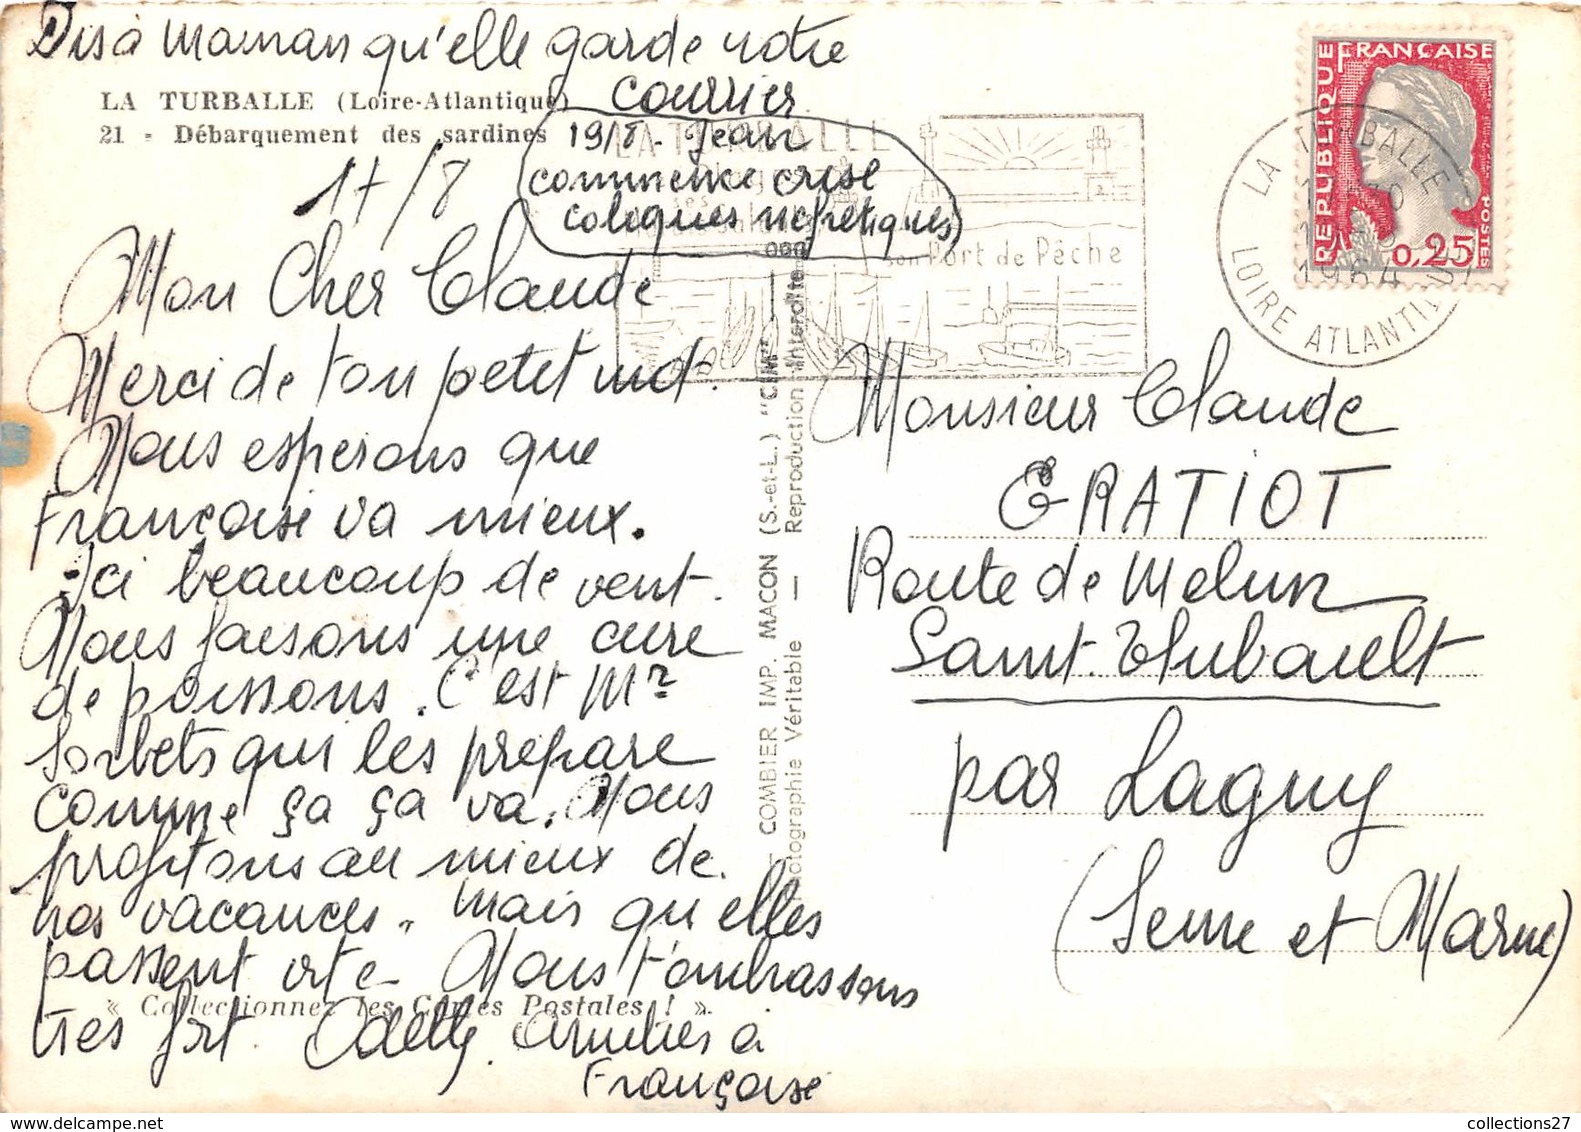 Dis à Maman qu'elle garde notre
courrier
LA TURBALLE (Loire-Atlantique)
21 - Débarquement des sardines
19/8. Jean
commence crise
coliques néfretiques
17/8
Mon Cher Claude
Merci de ton petit mot.
Nous esperons que
Françoise va mieux.
Ici beaucoup de vent.
Nous faisons une cure
de poissons. C'est Mr
Sorbets qui les prépare
comme ça ça va. Nous
profitons au mieux de
nos vacances. Mais qu'elles
passent vite. Nous t'embrassons
très fort. Odette. Amitiés à
Françoise
« Collectionnez les Cartes Postales ! »
COMBIER IMP. MACON (S.-et-L.) "CIM"
Photographie Véritable — Reproduction interdite
LA TURBALLE
son Port de Pêche
RÉPUBLIQUE FRANÇAISE
POSTES
0,25
LA TURBALLE
1964
LOIRE ATLANTIQUE
Monsieur Claude
GRATIOT
Route de Melun
Saint-Thibault
par Lagny
(Seine et Marne)
collections27